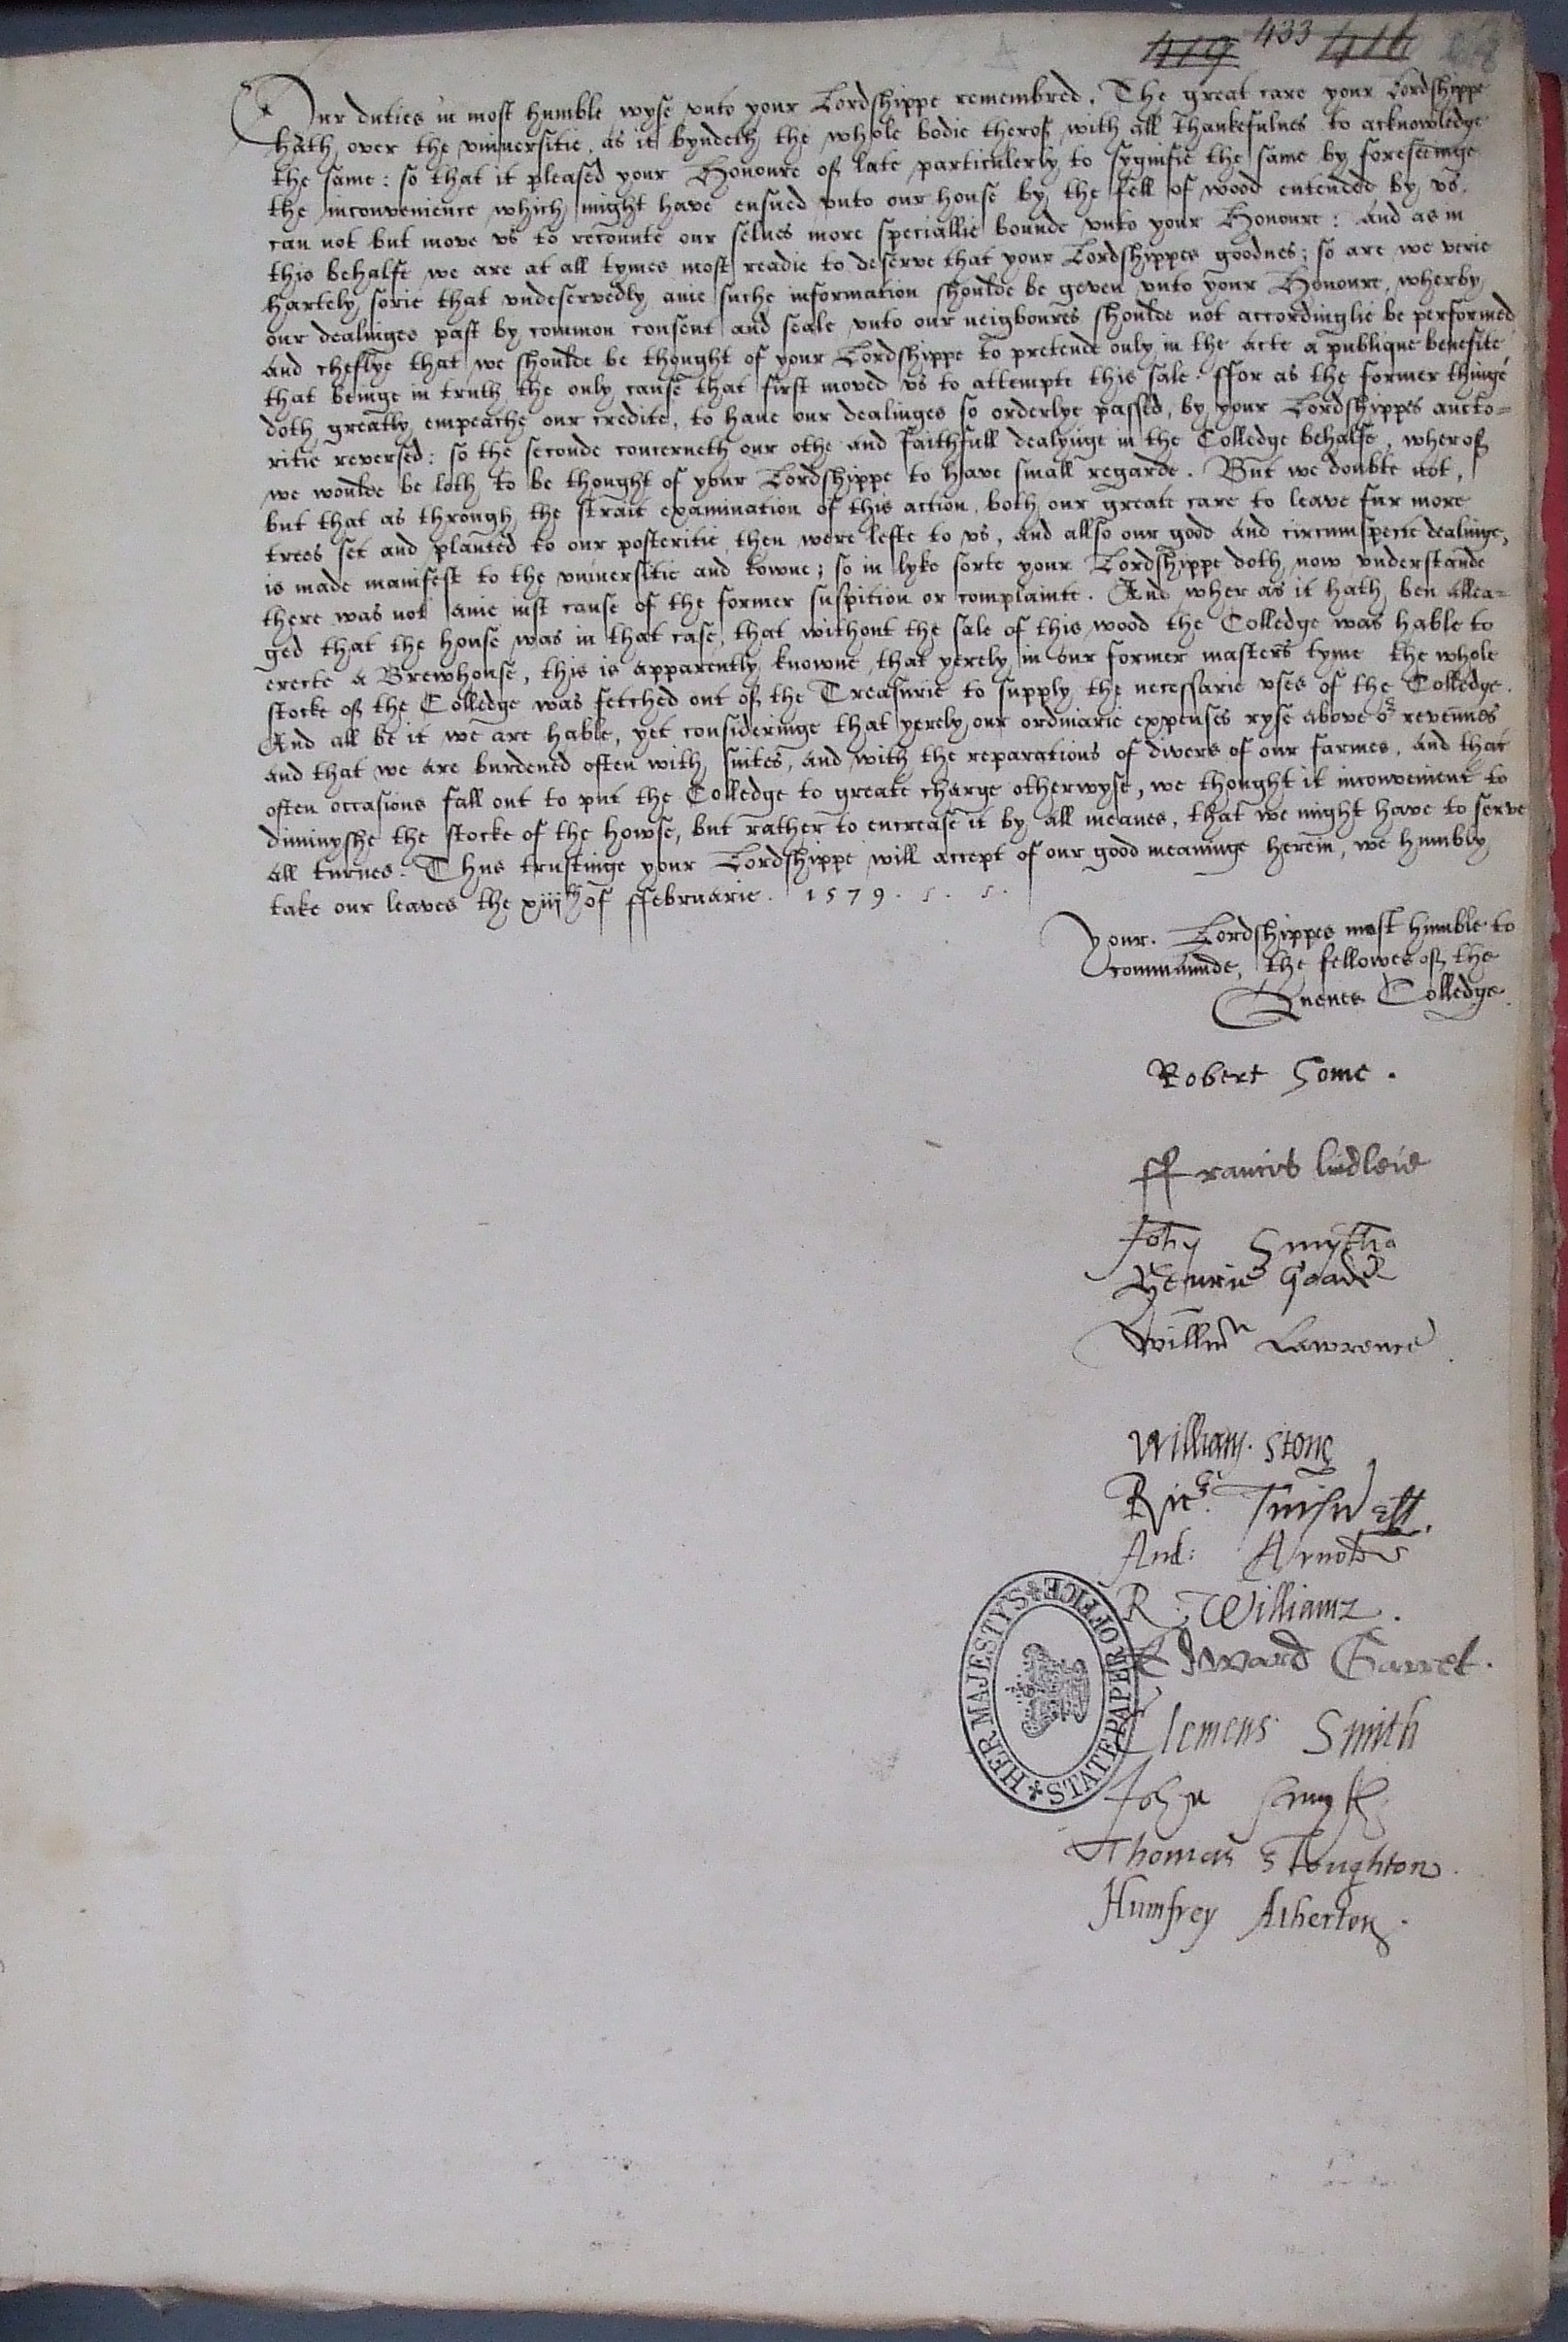 419 433 416
Our duties in most humble wyse vnto your Lordshippe remembred. The great care your Lordshippe
hath over the vniuersitie, as it byndeth the whole bodie therof with all thankefulnes to acknowledge
the same: so that it pleased your Honoure of late particulerly to sygnifie the same by foreseeinge
the inconvenience which might have ensued vnto our house by the fell of wood entended by vs,
can not but move vs to recounte our selues more speciallie bounde vnto your Honoure: And as in
this behalfe we are at all tymes most readie to deserve that your Lordshippes goodnes; so are we verie
hartely sorie that vndeservedly anie suche information shoulde be geven vnto your Honoure, wherby
our dealinges past by common consent and seale vnto our neigboures shoulde not accordinglie be performed
and cheflye that we shoulde be thought of your Lordshippe to pretende only in the acte a publique benefite,
that beinge in truth the only cause that first moved vs to attempte this sale. ffor as the former thinge
doth greatly empeache our credite, to haue our dealinges so orderlye passed, by your Lordshippes aucto=
ritie reversed: so the seconde concerneth our othe and faithfull dealynge in the Colledge behalfe, wherof
we woulde be loth to be thought of your Lordshippe to have small regarde. But we doubte not,
but that as through the strait examination of this action, both our greate care to leave fur more
trees set and planted to our posteritie then were lefte to vs, and allso our good and circumspecte dealinge,
is made manifest to the vniuersitie and towne; so in lyke sorte your Lordshippe doth now vnderstande
there was not anie iust cause of the former suspition or complainte. And wher as it hath ben allea=
ged that the house was in that case, that without the sale of this wood the Colledge was hable to
erecte a Brewhouse, this is apparently knowne that yerely in our former masters tyme the whole
stocke of the Colledge was fetched out of the Treasurie to supply the necessarie vses of the Colledge.
And all be it we are hable, yet consideringe that yerely our ordinarie expenses ryse above or revenues
and that we are burdened often with suites, and with the reparations of divers of our farmes, and that
often occasions fall out to put the Colledge to greate charge otherwyse, we thought it inconvenient to
diminyshe the stocke of the howse, but rather to encrease it by all meanes, that we might have to serve
all turnes. Thus trustinge your Lordshippe will accept of our good meaninge herein, we humbly
take our leaves the xiijth of ffebruarie. 1579.
your Lordshippes most humble to
commaunde, the fellowes of the
Quenes Colledge.
Robert Some.
ffrancis lindleie
John Smythe
Henrie Goade
Willm Lawrence
William. Stone
Ric.
And: Arnolde
R. Williamz.
Edward Garret.
Clemens Smith
John Smyth
Thomas Stoughton.
Humfrey Atherton.
HER MAJESTYS STATE PAPER OFFICE